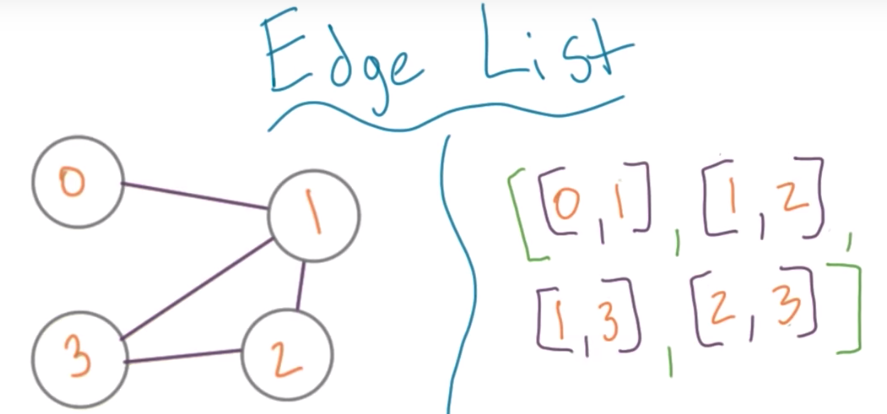 Edge List
0
1
3
2
[[0,1],[1,2],
[1,3],[2,3]]